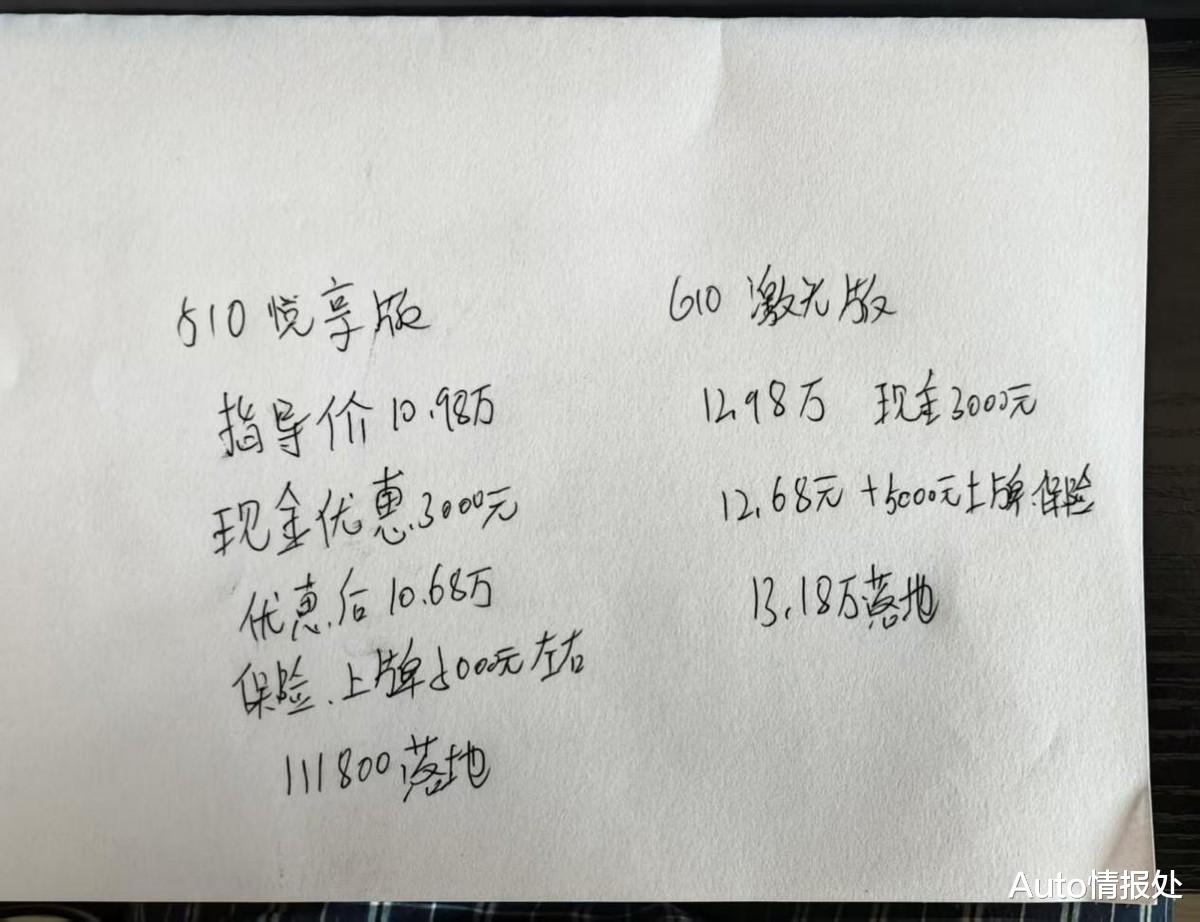 510 悦享版
指导价 10.98万
现金优惠.3000元
优惠.后 10.68万
保险.上牌5000元左右
111800 落地
610 激光版
12.98万 现金3000元
12.68元 +5000元上牌.保险
13.18万落地
Auto情报处